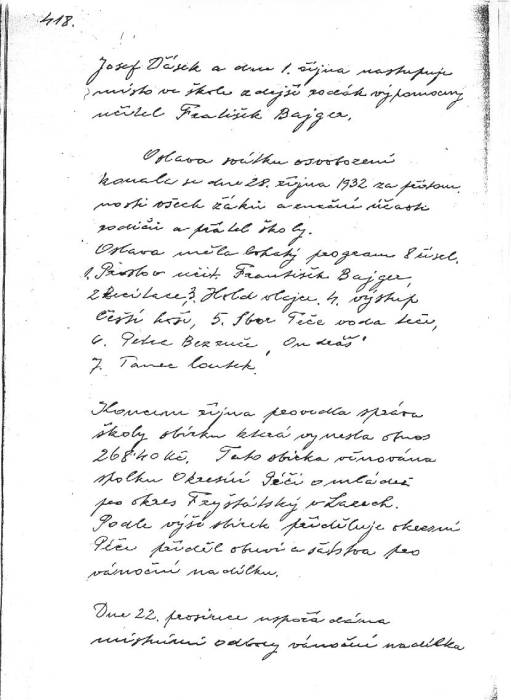 418.
Josef Dásek a dne 1. října nastupuje
místo ve škole zdejší rodák výpomocný
učitel Fratišek Bajger.
Oslava svátku osvobození
konala se dne 28. října 1932 za přítom
nosti všech žáků a značné účasti
rodičů a přátel školy.
Oslava měla bohatý program 8 čísel.
1. Proslov učit. František Bajger,
2 Recitace, 3. Hold vlajce. 4. výstup
Čeští hoši, 5. Sbor Teče voda teče,
6. Petr Bezruč, "Ondráš"
7. Tanec loutek.
Koncem října provedla správa
školy sbírku která vynesla obnos
268'40 Kč. Tato sbírka věnována
spolku Okresní Péči o mládež
pro okres Fryštátský v Lazech.
Podle výše sbírek přiděluje okresní
Péče příděl obuvi a šatstva pro
vánoční nadílku.
Dne 22. prosince uspořádána
místními odbory vánoční nadílka